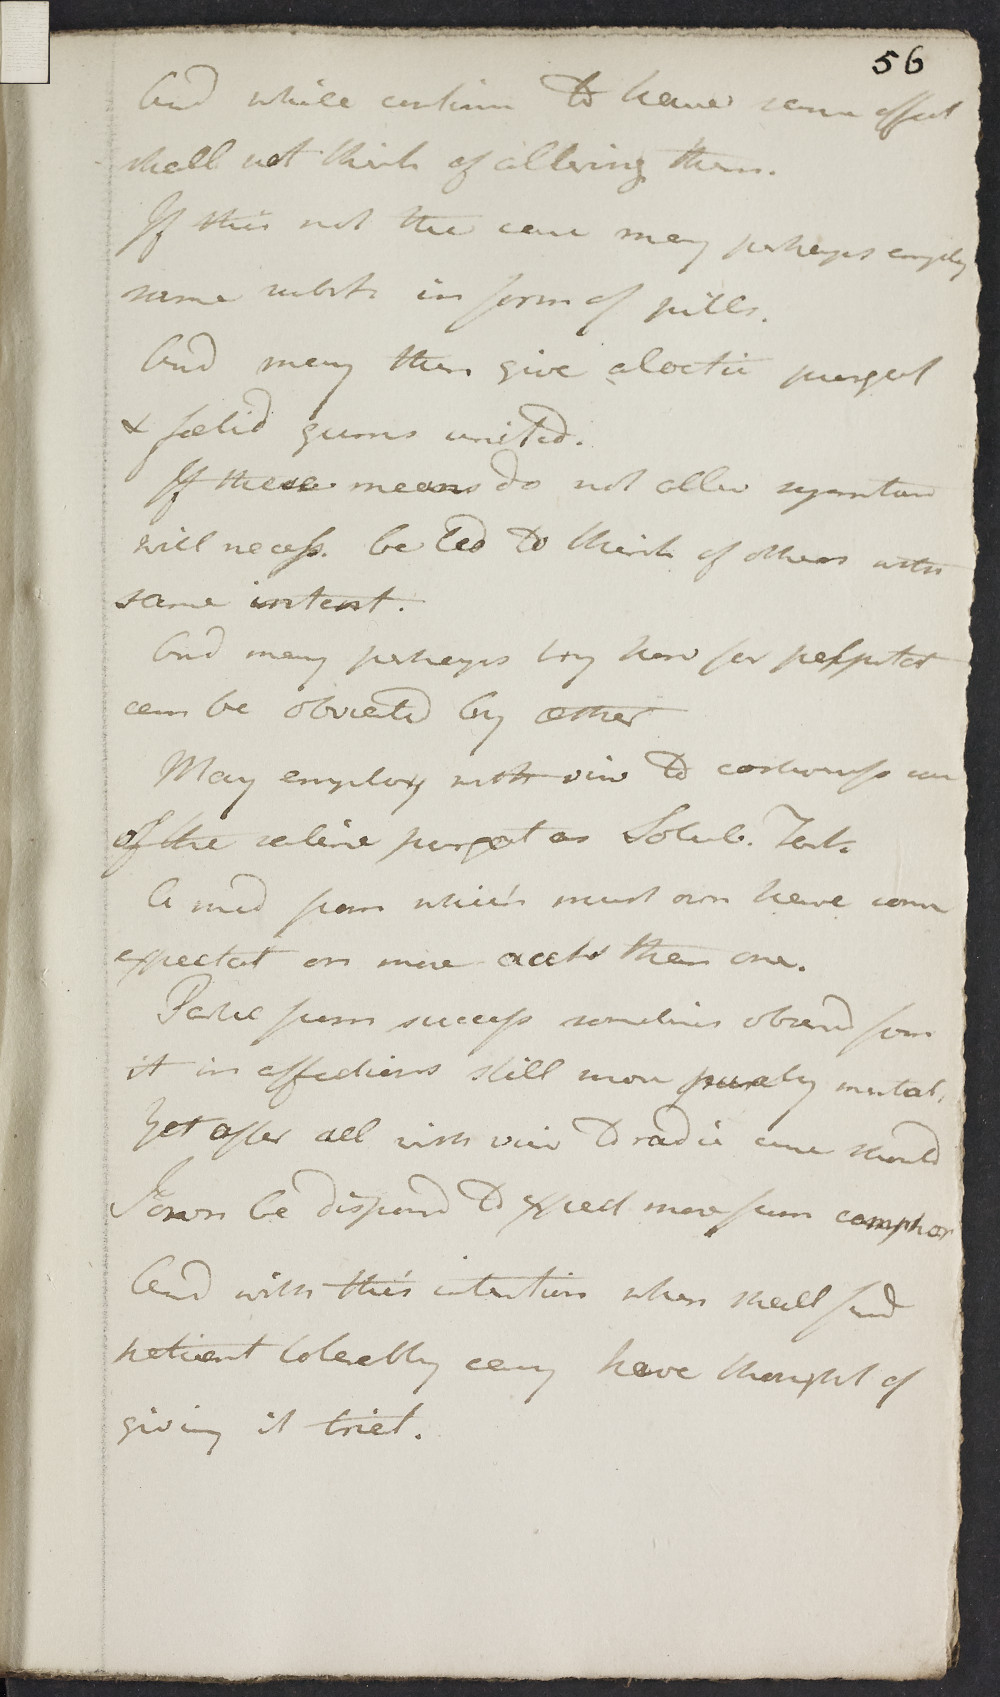 56
And while continue to have same effect
shall not think of altering them.
If this not the case may perhaps employ
same substs in form of pills.
And may then give aloetic purgat
& fœtid gums united.
If these means do not alter symptoms
will necess. be led to think of others with
same intent.
And may perhaps try how far palpitat
can be obviated by æther
May employ with view to costiveness one
of the saline purgat as Solub. Tart.
A med from which must own have some
expectat on more accts than one.
Partic from success sometimes observd from
it in affections still more purely mental.
Yet after all with view to radic cure should
I own be disposed to expect more from camphor
And with this intention when shall find
patient tolerably easy have thought of
giving it trial.